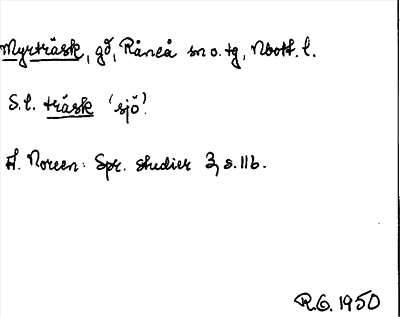 Myrträsk, gd, Råneå sn o. tg, Nbott. l.
S.l. träsk 'sjö'.
A. Noreen: Spr. studier 3, s. 11b.
R.G. 1950